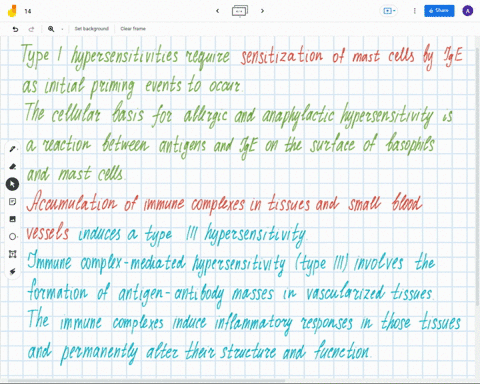 14
Set background
Clear frame
Share
A
Type I hypersensitivities require sensitization of mast cells by IgE
as initial priming events to occur
The cellular basis for allergic and anaphylactic hypersensitivity is
a reaction between antigens and IgE on the surface of basophils
and mast cells
Accumulation of immune complexes in tissues and small blood
vessels induces a type III hypersensitivity
Immune complex-mediated hypersensitivity (type III) involves the
formation of antigen-antibody masses in vascularized tissues
The immune complexes induce inflammatory responses in those tissues
and permanently alter their structure and fucnction.